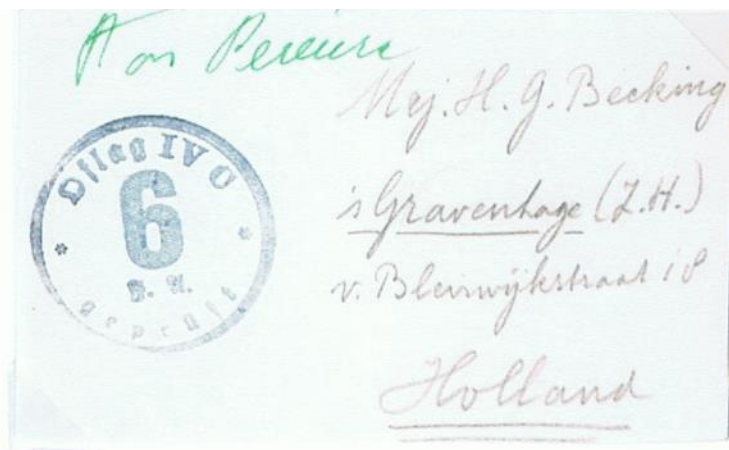 Oflag IV C
6
geprüft
Mej. H. G. Becking
's Gravenhage (Z.H.)
v. Bleiswijkstraat 18
Holland